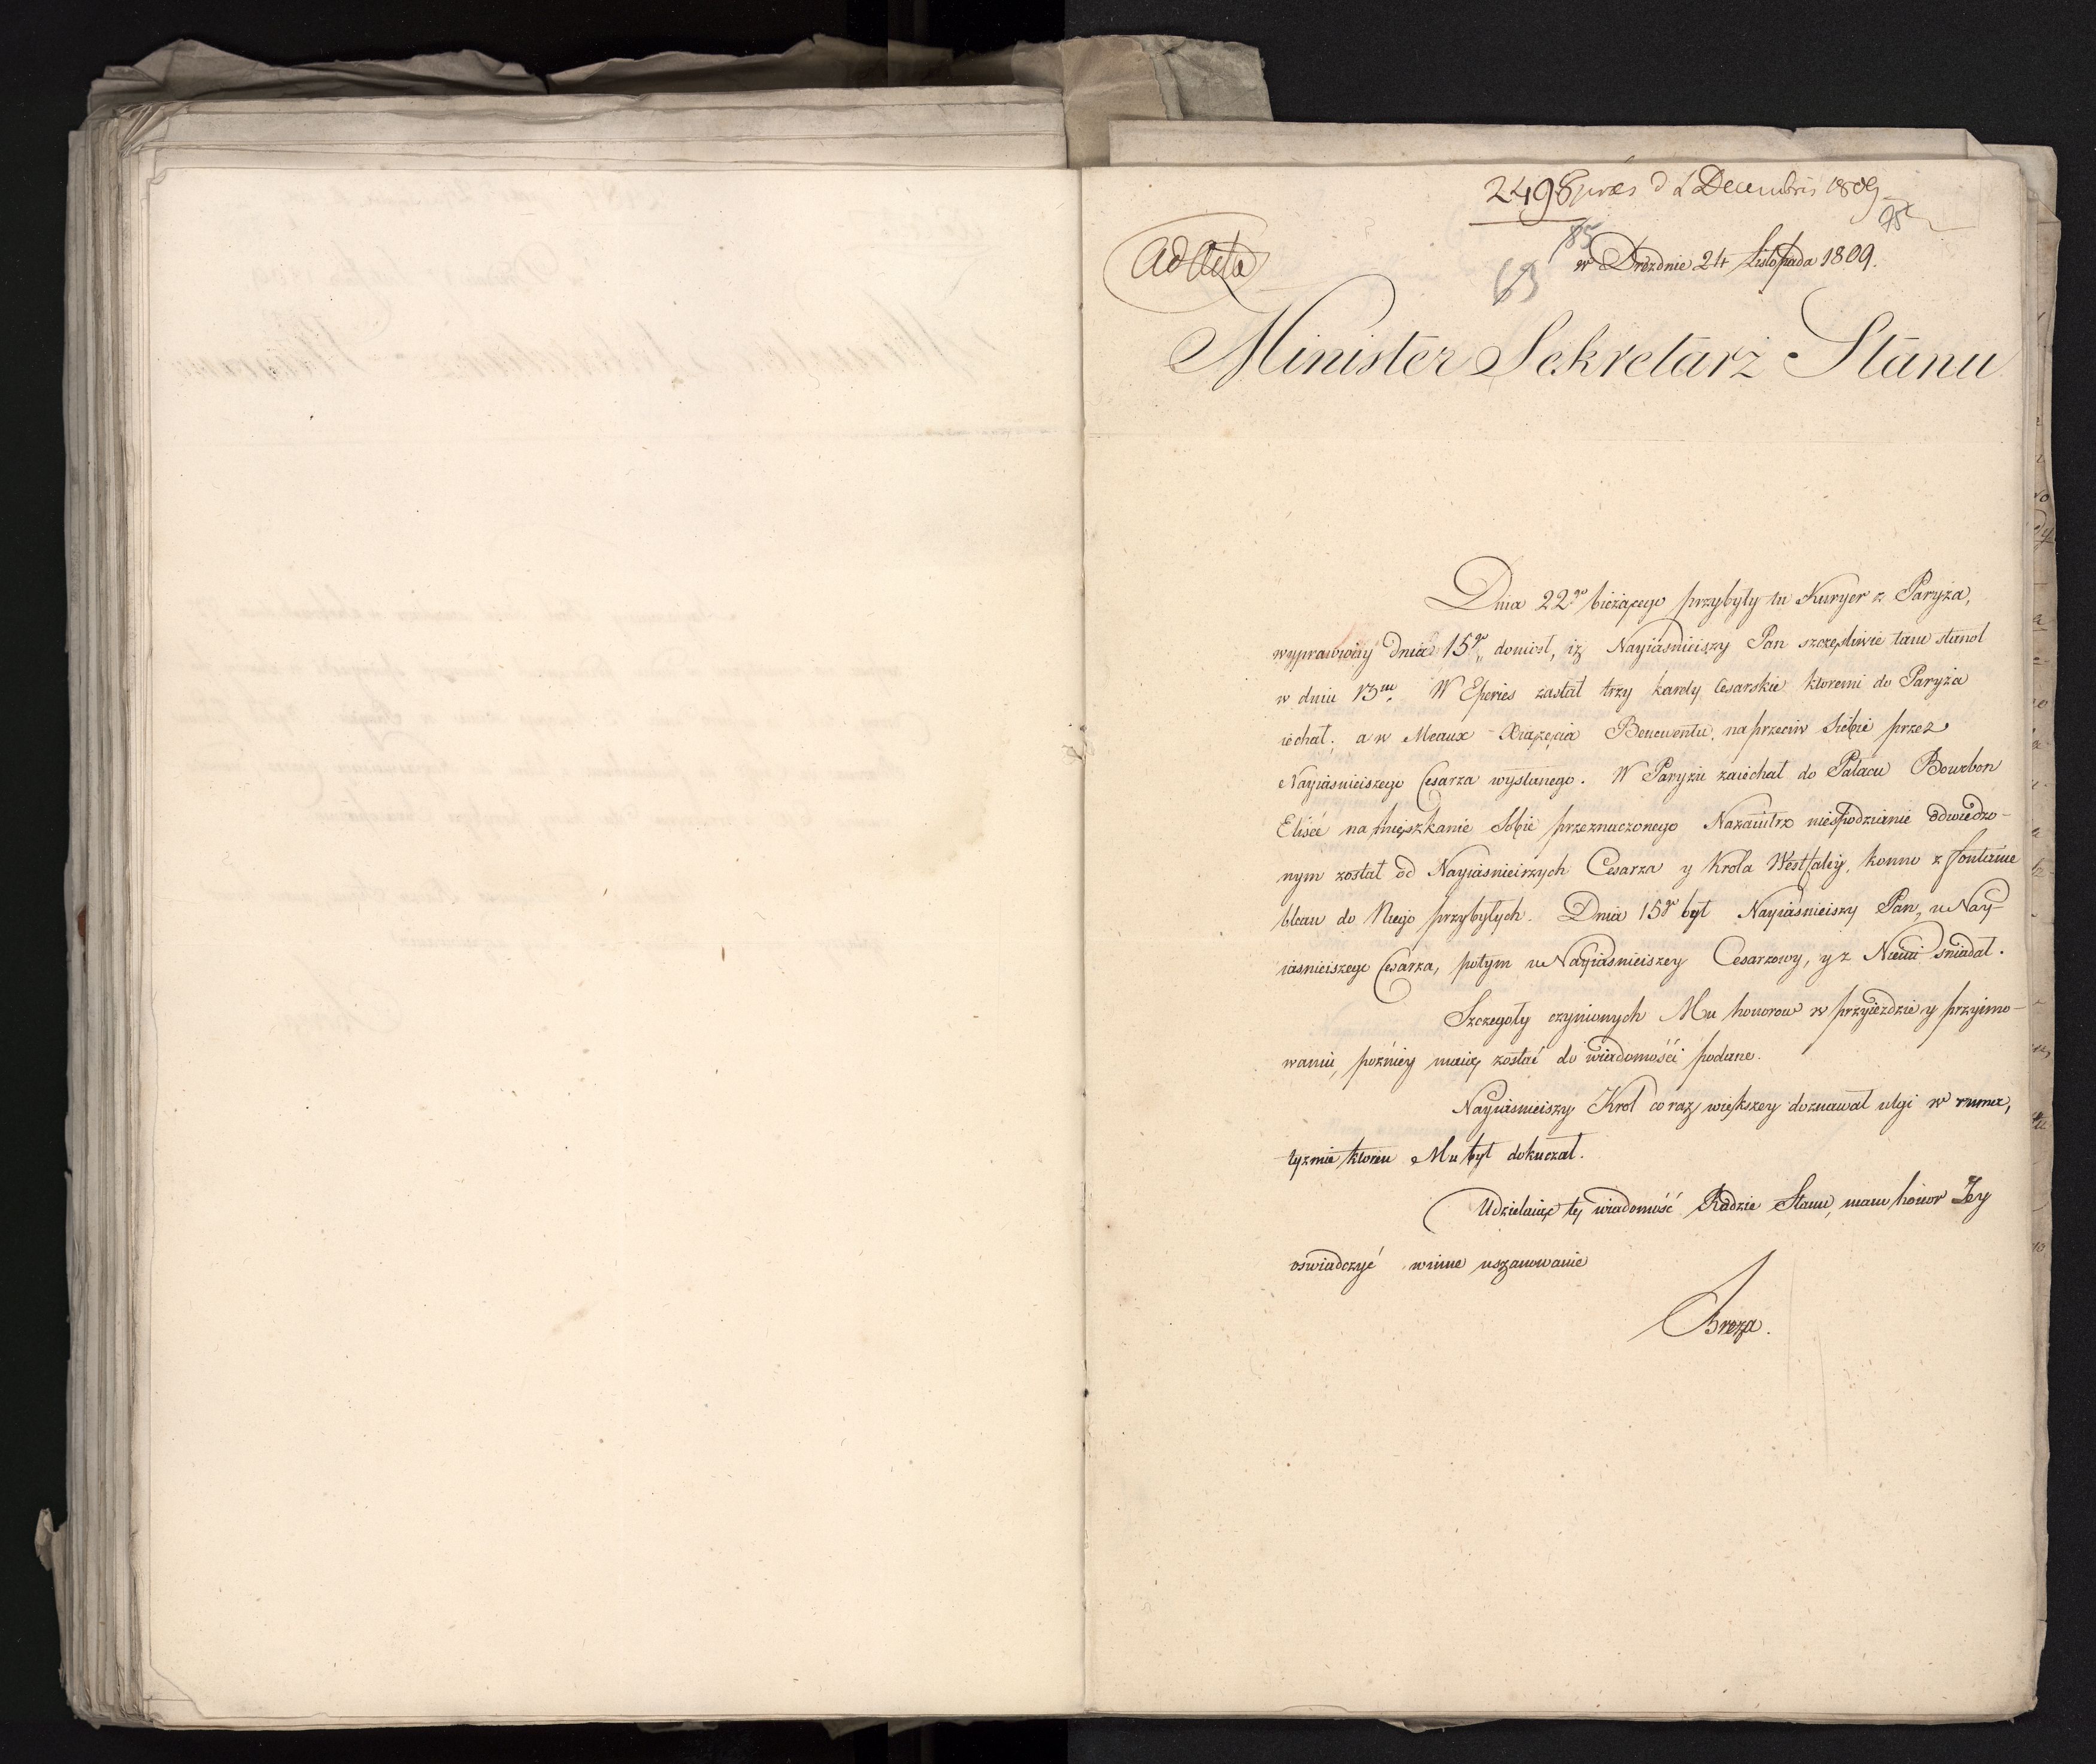 2498 præs d 2 Decembris 1809
95
85
w Drezdnie 24 Listopada 1809.
Ad Acta
63
Minister Sekretarz Stanu
Dnia 22go bieżącego przybyły tu Kuryer z Paryża,
wyprawiony dnia 15go doniosł, iż Nayiaśnieiszy Pan szczęśliwie tam stanoł
w dniu 13m. W Epernies zastał trzy karety Cesarskie ktoremi do Paryża
iechał; a w Meaux Xiążęcia Benewentu, naprzeciw Siebie przez
Nayiasnieiszego Cesarza wysłanego. W Paryżu zaiechał do Pałacu Bourbon
Elisée na mięszkanie Sobie przeznaczonego Nazaiutrz niespodzianie odwiedzo-
nym został od Nayiasnieiszych Cesarza y Krola Westfaliy, konno z fontaine
bleau do Niego przybyłych. Dnia 15go był Nayiasnieiszy Pan, u Nay-
iasnieiszego Cesarza, potym u Nayiasnieiszey Cesarzowy, y z Niemi sniadał.
Szczegoły czynionych Mu honorow w przyieździe y przyimo-
waniu, poźniey maią zostać do wiadomości podane.
Nayiasnieiszy Krol coraz większey doznawał ulgi w rnma,
tyzmie ktoren Mu był dokuczał.
Udzielaiąc tę wiadomość Radzie Stanu, mam honor Jey
oswiadczyć winne uszanowanie
Breza.